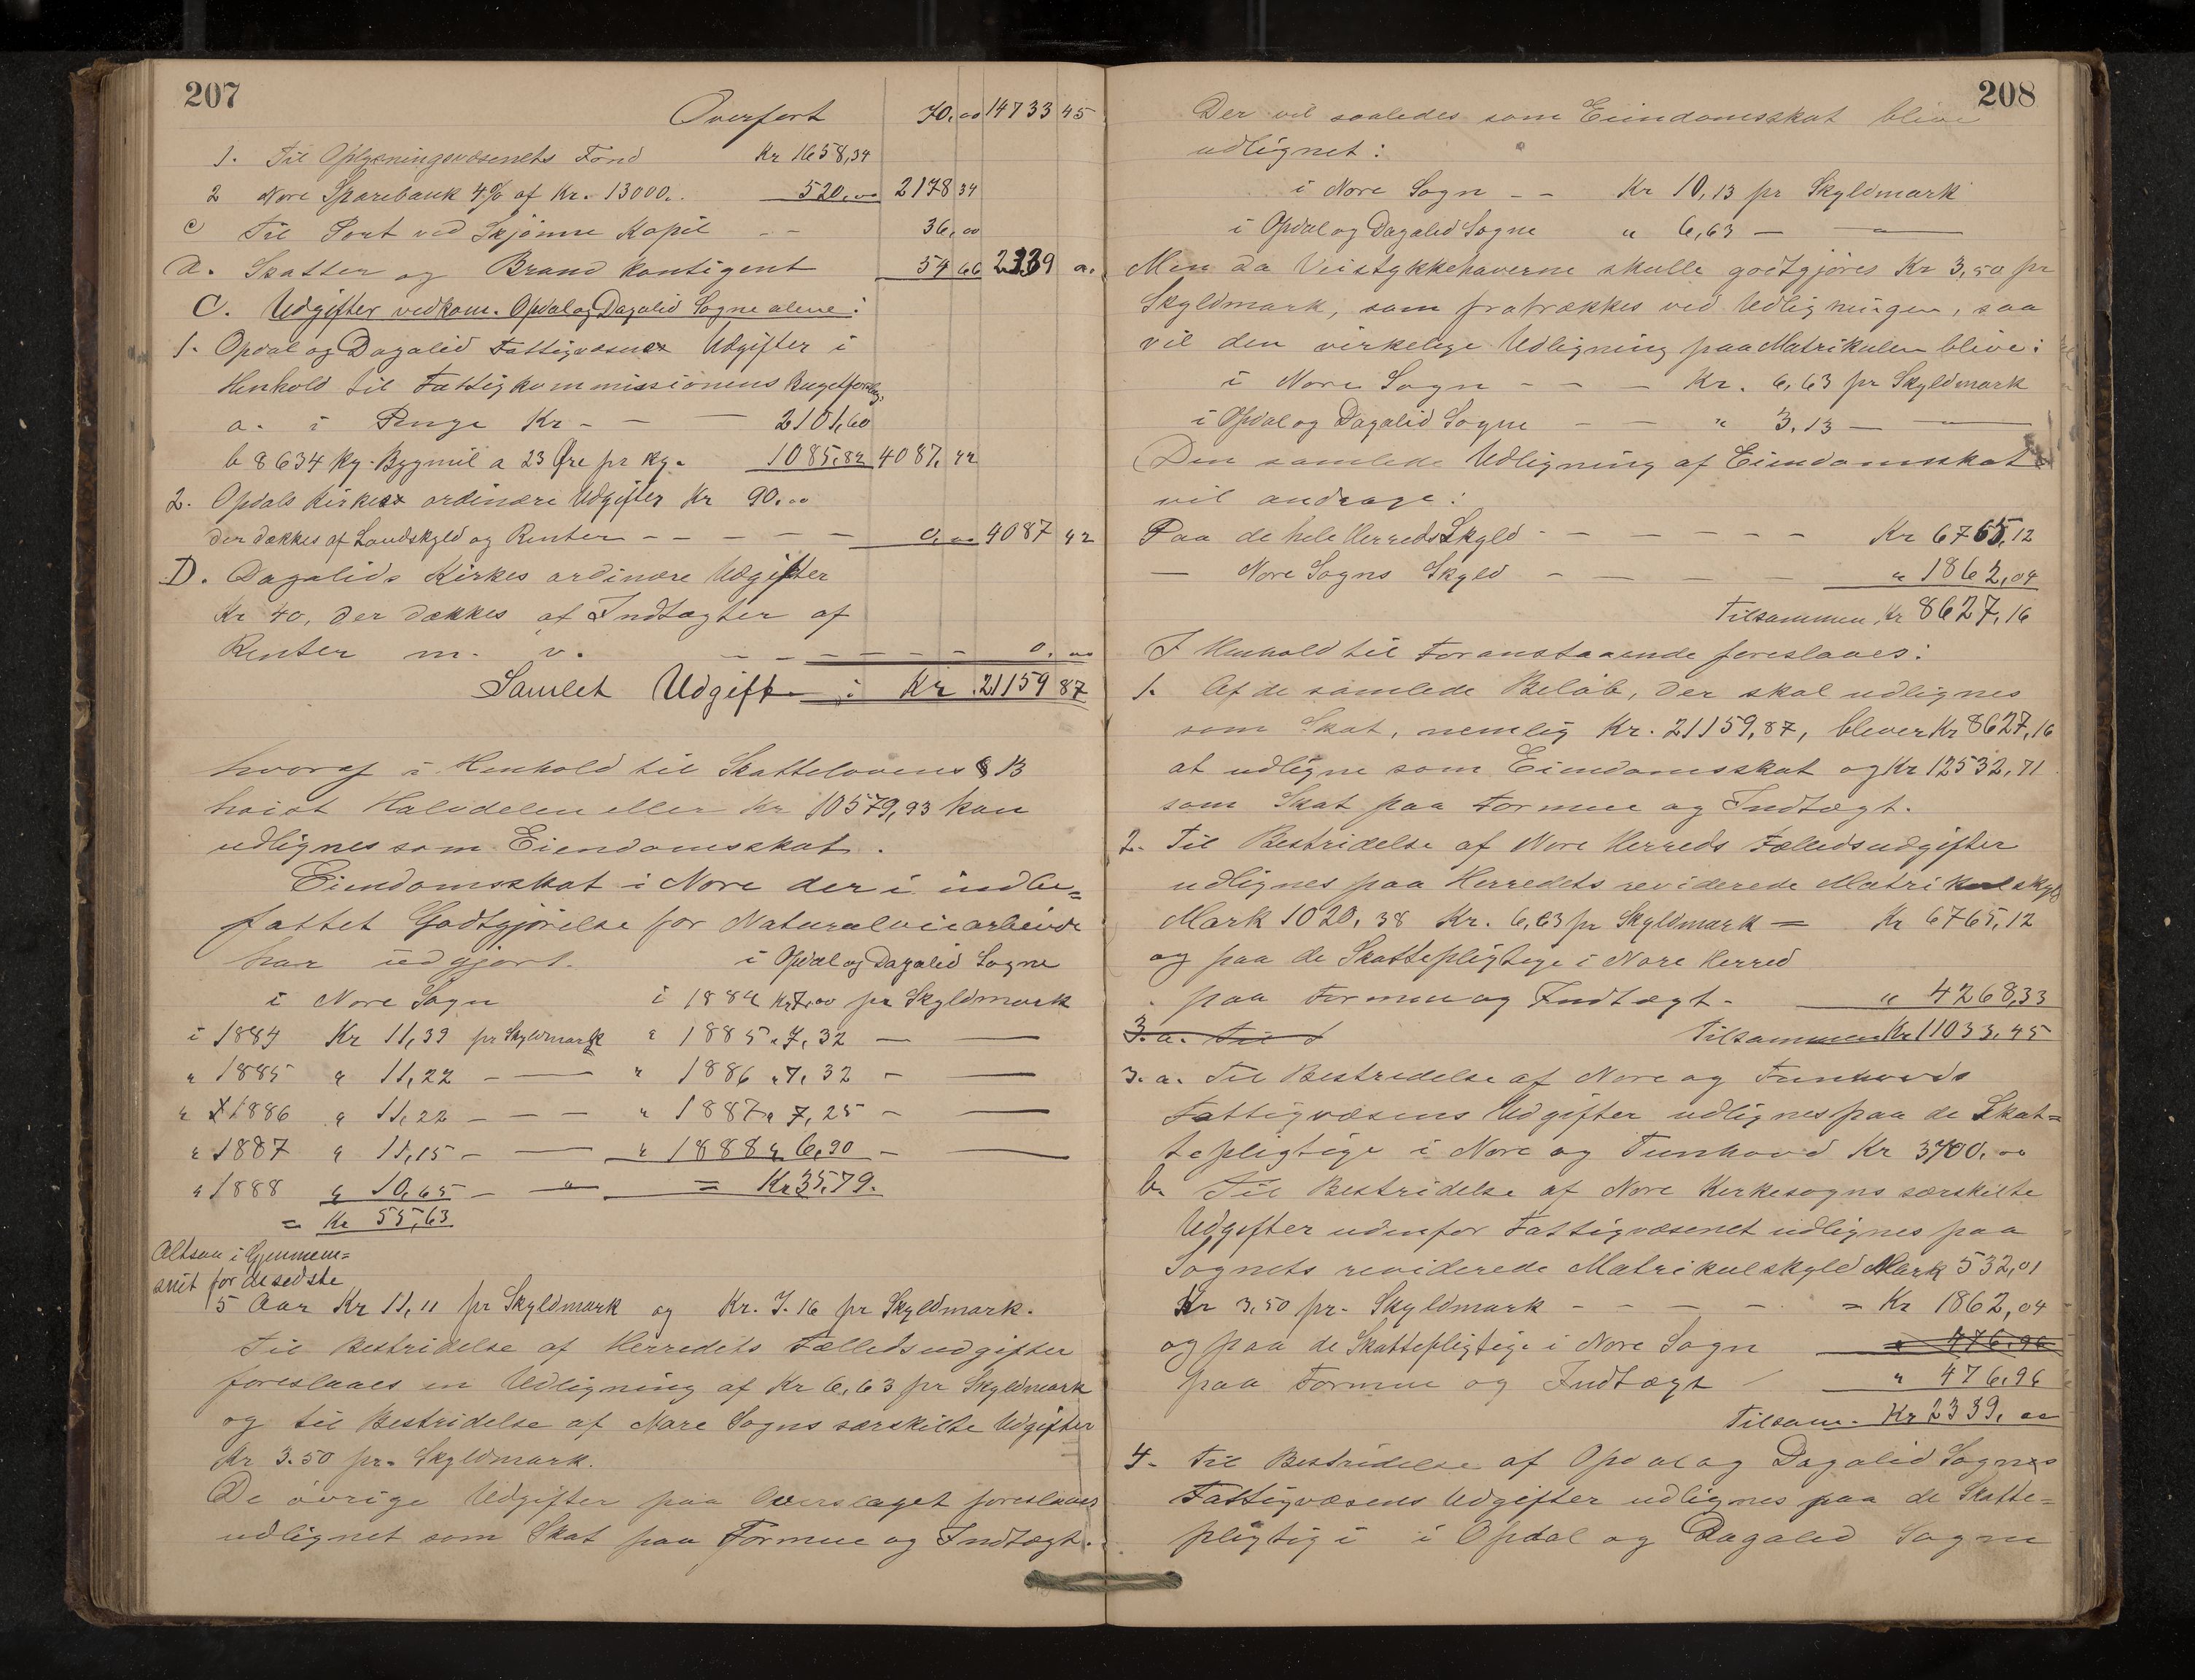 207
Overført 70,00 14733 45
1. Til Oplysningsvæsenets Fond Kr 1658,34
2 Nore Sparebank 4% af Kr. 13000.. 520,00 2178 34
c Til Port ved Skjønne Kapel - - 36,00
d. Skatter og Brand kontigent 54 66 2339 a.
C. Udgifter vedkom. Opdal og Dagalid Sogne alene:
1. Opdal og Dagalid Fattigvæsens Udgifter i
Henhold til Fattigkommissionens Bugetforslag.
a. i Penge Kr - - 2101,60
b 8634 Kg. Bygmel a 23 Øre pr Kg. 1985,82 4087,42
2. Opdals Kirkes ordinære Udgifter Kr 90.00
der dækkes af Landskyld og Renter - - - - - 0,00 4087 42
D. Dagalids Kirkes ordinære Udgifter
Kr 40, der dækkes af Indtægter af
Renter m. v. - - - - - - 0.00
Samlet Udgift i Kr. 21159 87
hvoraf i Henhold til Skattelovens § 13
høist Halvdelen eller Kr 10579,93 kan
udlignes som Eiendomsskat.
Eiendomsskat i Nore deri indbe=
fattet Godtgjørelse for Naturalveiarbeide
har udgjort. i Opdal og Dagalid Sogne
i Nore Sogn i 1884 Kr 7,00 pr Skyldmark
i 1884 Kr 11,39 pr Skyldmark " 1885 " 7,32 — —
" 1885 " 11,22 - — " 1886 " 7,32 - —
" 1886 " 11,22 - - - " 1887 " 7,25 - —
" 1887 " 11,15 - — " 1888 " 6,90 - —
" 1888 " 10,65 - " = Kr 35,79.
= Kr 55,63
Altsaa i Gjennem=
snit for de sidste
5 Aar Kr 11,11 pr Skyldmark og Kr. 7.16 pr Skyldmark.
Til Bestridelse af Herredets Fælledsudgifter
foreslaaes en Udligning af Kr 6,63 pr Skyldmark
og til Bestridelse af Nore Sogns særskilte Udgifter
Kr 3.50 pr. Skyldmark.
De øvrige Udgifter paa Overslaget foreslaaes
udlignet som Skat paa Formue og Indtægt.
208
Der vil saaledes som Eiendomsskat blive
udlignet:
i Nore Sogn - - Kr 10,13 pr Skyldmark
i Opdal og Dagalid Sogne " 6,63 — "
Men da Veistykkehaverne skulle godtgjøres Kr 3,50 pr
Skyldmark, som fratrækkes ved Udligningen, saa
vil den virkelige Udligning paa Matrikulen blive:
i Nore Sogn - - - Kr. 6,63 pr Skyldmark
i Opdal og Dagalid Sogne - - " 3,13 — "
Den samlede Udligning af Eiendomsskat
vil andrage:
Paa de hele Herreds Skyld - - - - - - Kr 6765,12
— Nore Sogns Skyld - - - - " 1862,04
Tilsammen Kr 8627,16
I Henhold til Foranstaaende foreslaaes:
1. Af de samlede Beløb, der skal udlignes
som Skat, nemlig Kr. 21159,87, bliver Kr 8627,16
at udligne som Eiendomsskat og Kr 12532,71
som Skat paa Formue og Indtægt.
2. Til Bestridelse af Nore Herreds Fælledsudgifter
udlignes paa Herredets reviderede Matrikulskyld
Mark 1020,38 Kr. 6,63 pr Skyldmark = Kr 6765,12
og paa de Skattepligtige i Nore Herred
paa Formue og Indtægt - " 4268,33
3. a. Til Tilsammen Kr 11033,45
3. a. Til Bestridelse af Nore og Tunhovds
Fattigvæsens Udgifter udlignes paa de Skat=
tepligtige i Nore og Tunhovd Kr 3700.00
b. Til Bestridelse af Nore Kirkesogns særskilte
Udgifter udenfor Fattigvæsenet udlignes paa
Sognets reviderede Matrikulskyld Mark 532,01
Kr 3,50 pr. Skyldmark - - - - = Kr 1862,04
og paa de Skattepligtige i Nore Sogn " 476,96
paa Formue og Indtægt " 476,96
Tilsam. Kr 2339,00
4. Til Bestridelse af Opdal og Dagalid Sognes
Fattigvæsens Udgifter udlignes paa de Skatte=
pligtige i Opdal og Dagalid Sogne